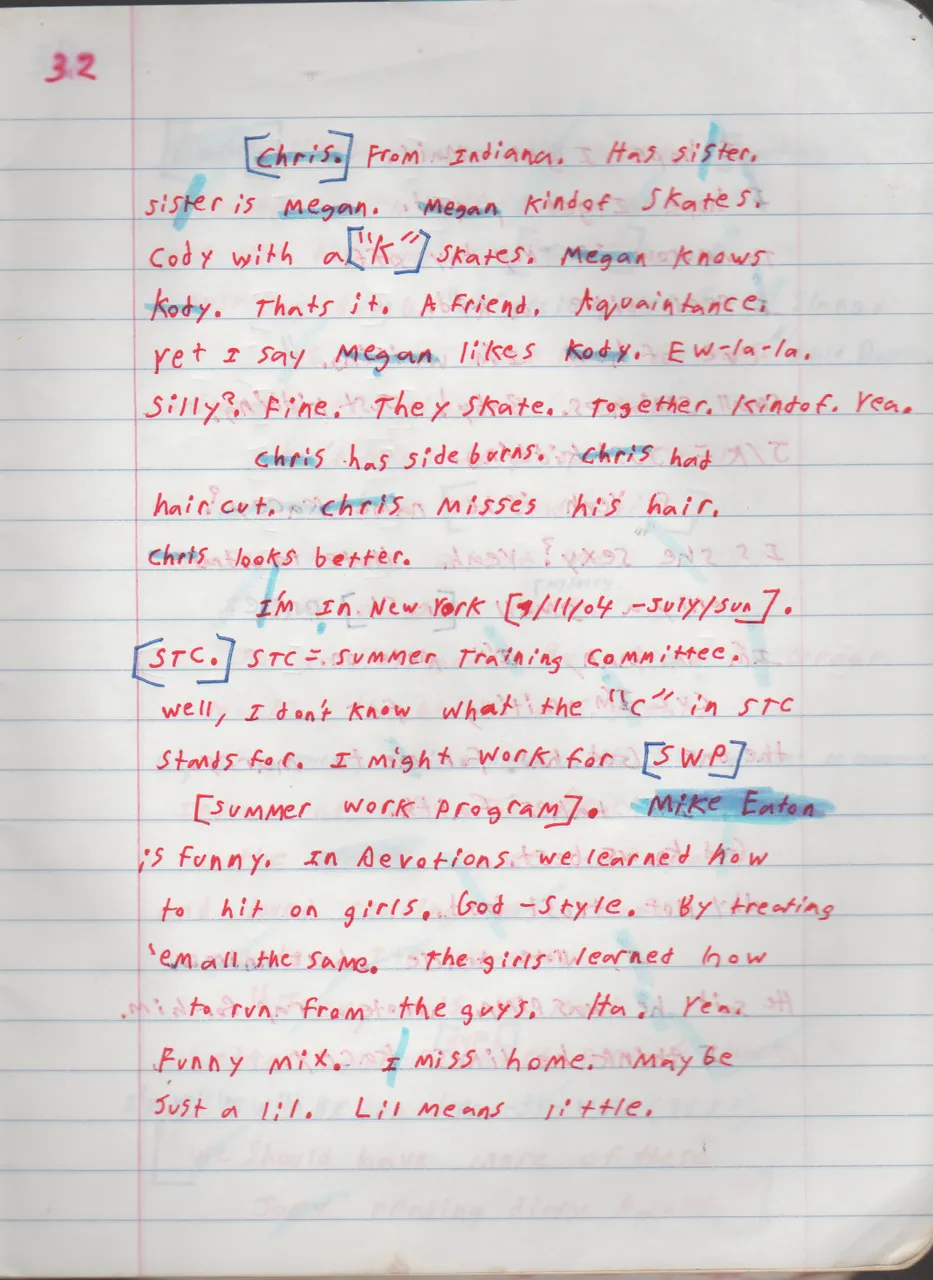 32
[Chris.] From Indiana. Has sister.
sister is Megan. Megan kindof skates.
Cody with a ["K"] skates. Megan knows
Kody. Thats it. A friend. Aquaintance.
yet I say Megan likes Kody. Ew-la-la.
Silly? Fine. They skate. Together. Kindof. Yea.
Chris has side burns. Chris had
hair cut. Chris misses his hair.
Chris looks better.
I'm In New York [7/11/04 - July/Sun].
[STC.] STC = Summer Training Committee.
well, I don't know what the "C" in STC
stands for. I might work for [SWP]
[Summer work program]. Mike Eaton
is funny. In Devotions, we learned how
to hit on girls. God-style. By treating
'em all the same. The girls learned how
to run from the guys. Ha. Yea.
Funny mix. I miss home. Maybe
Just a lil. Lil means little.